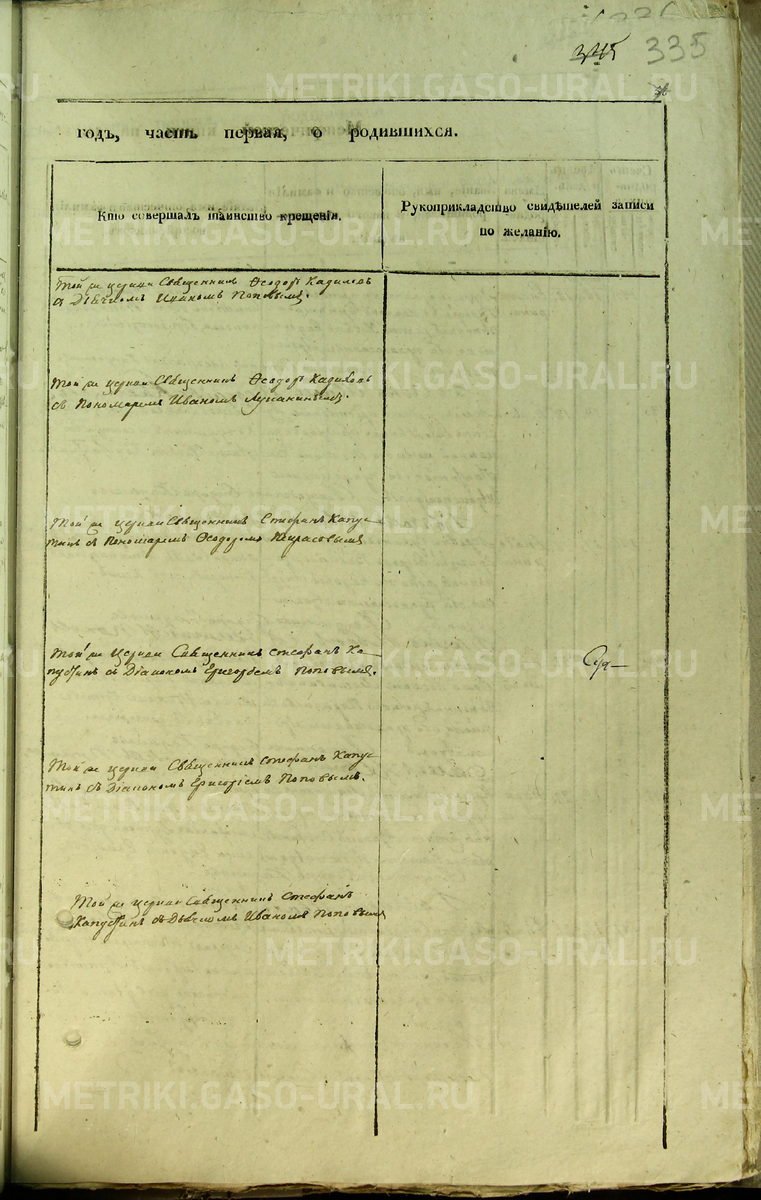 345 335
METRIKI.GASO-URAL.RU
годъ, часть первая, о родившихся.
Кто совершалъ таинство крещенія.
Рукоприкладство свидѣтелей записи
по желанію.
Той же церкви Священникъ Ѳеодоръ Кадиловъ
съ Дьячкомъ Иваномъ Поповымъ.
Той же церкви Священникъ Ѳеодоръ Кадиловъ
съ Пономаремъ Иваномъ
Той же церкви Священникъ Стефанъ Капус-
тинъ съ Пономаремъ Ѳеодоромъ Некрасовымъ
Той же Церкви Священникъ Стефанъ Ка-
пустинъ съ Діакономъ Григоріемъ Поповымъ.
Той же церкви Священникъ Стефанъ Капус-
тинъ съ Діакономъ Григоріемъ Поповымъ.
Той же церкви Священникъ Стефанъ
Капустинъ съ Дьячкомъ Иваномъ Поповымъ